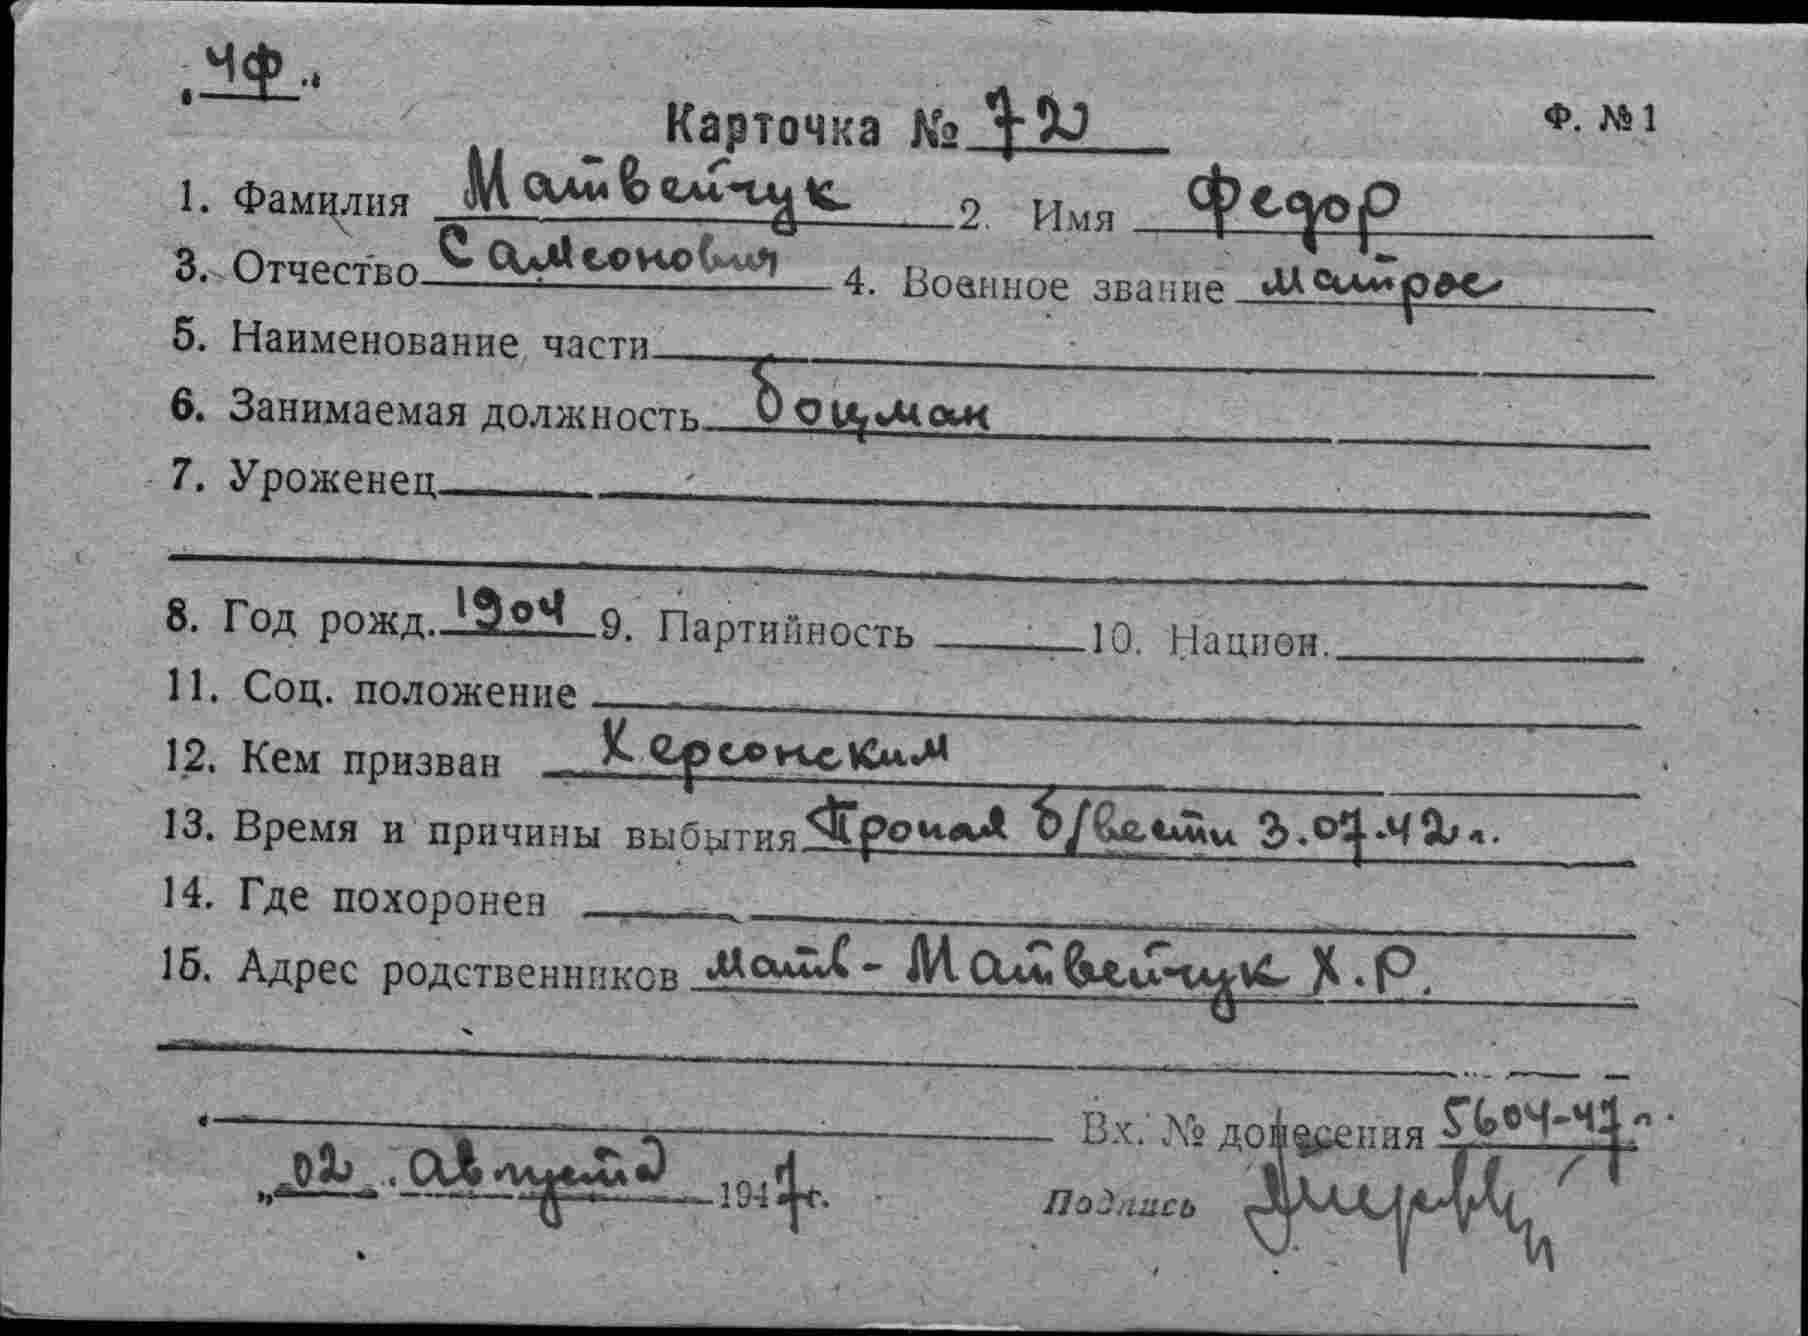 „ЧФ“
Карточка № 72 Ф. № 1
1. Фамилия Матвейчук 2. Имя Федор
3. Отчество Самсонович 4. Военное звание матрос
5. Наименование части
6. Занимаемая должность боцман
7. Уроженец
8. Год рожд. 1904 9. Партийность 10. Национ.
11. Соц. положение
12. Кем призван Херсонским
13. Время и причины выбытия Пропал б/вести 3.07.42 г.
14. Где похоронен
15. Адрес родственников мать - Матвейчук Х.Р.
Вх. № донесения 5604-47 г.
„02“ августа 1947 г. Подпись